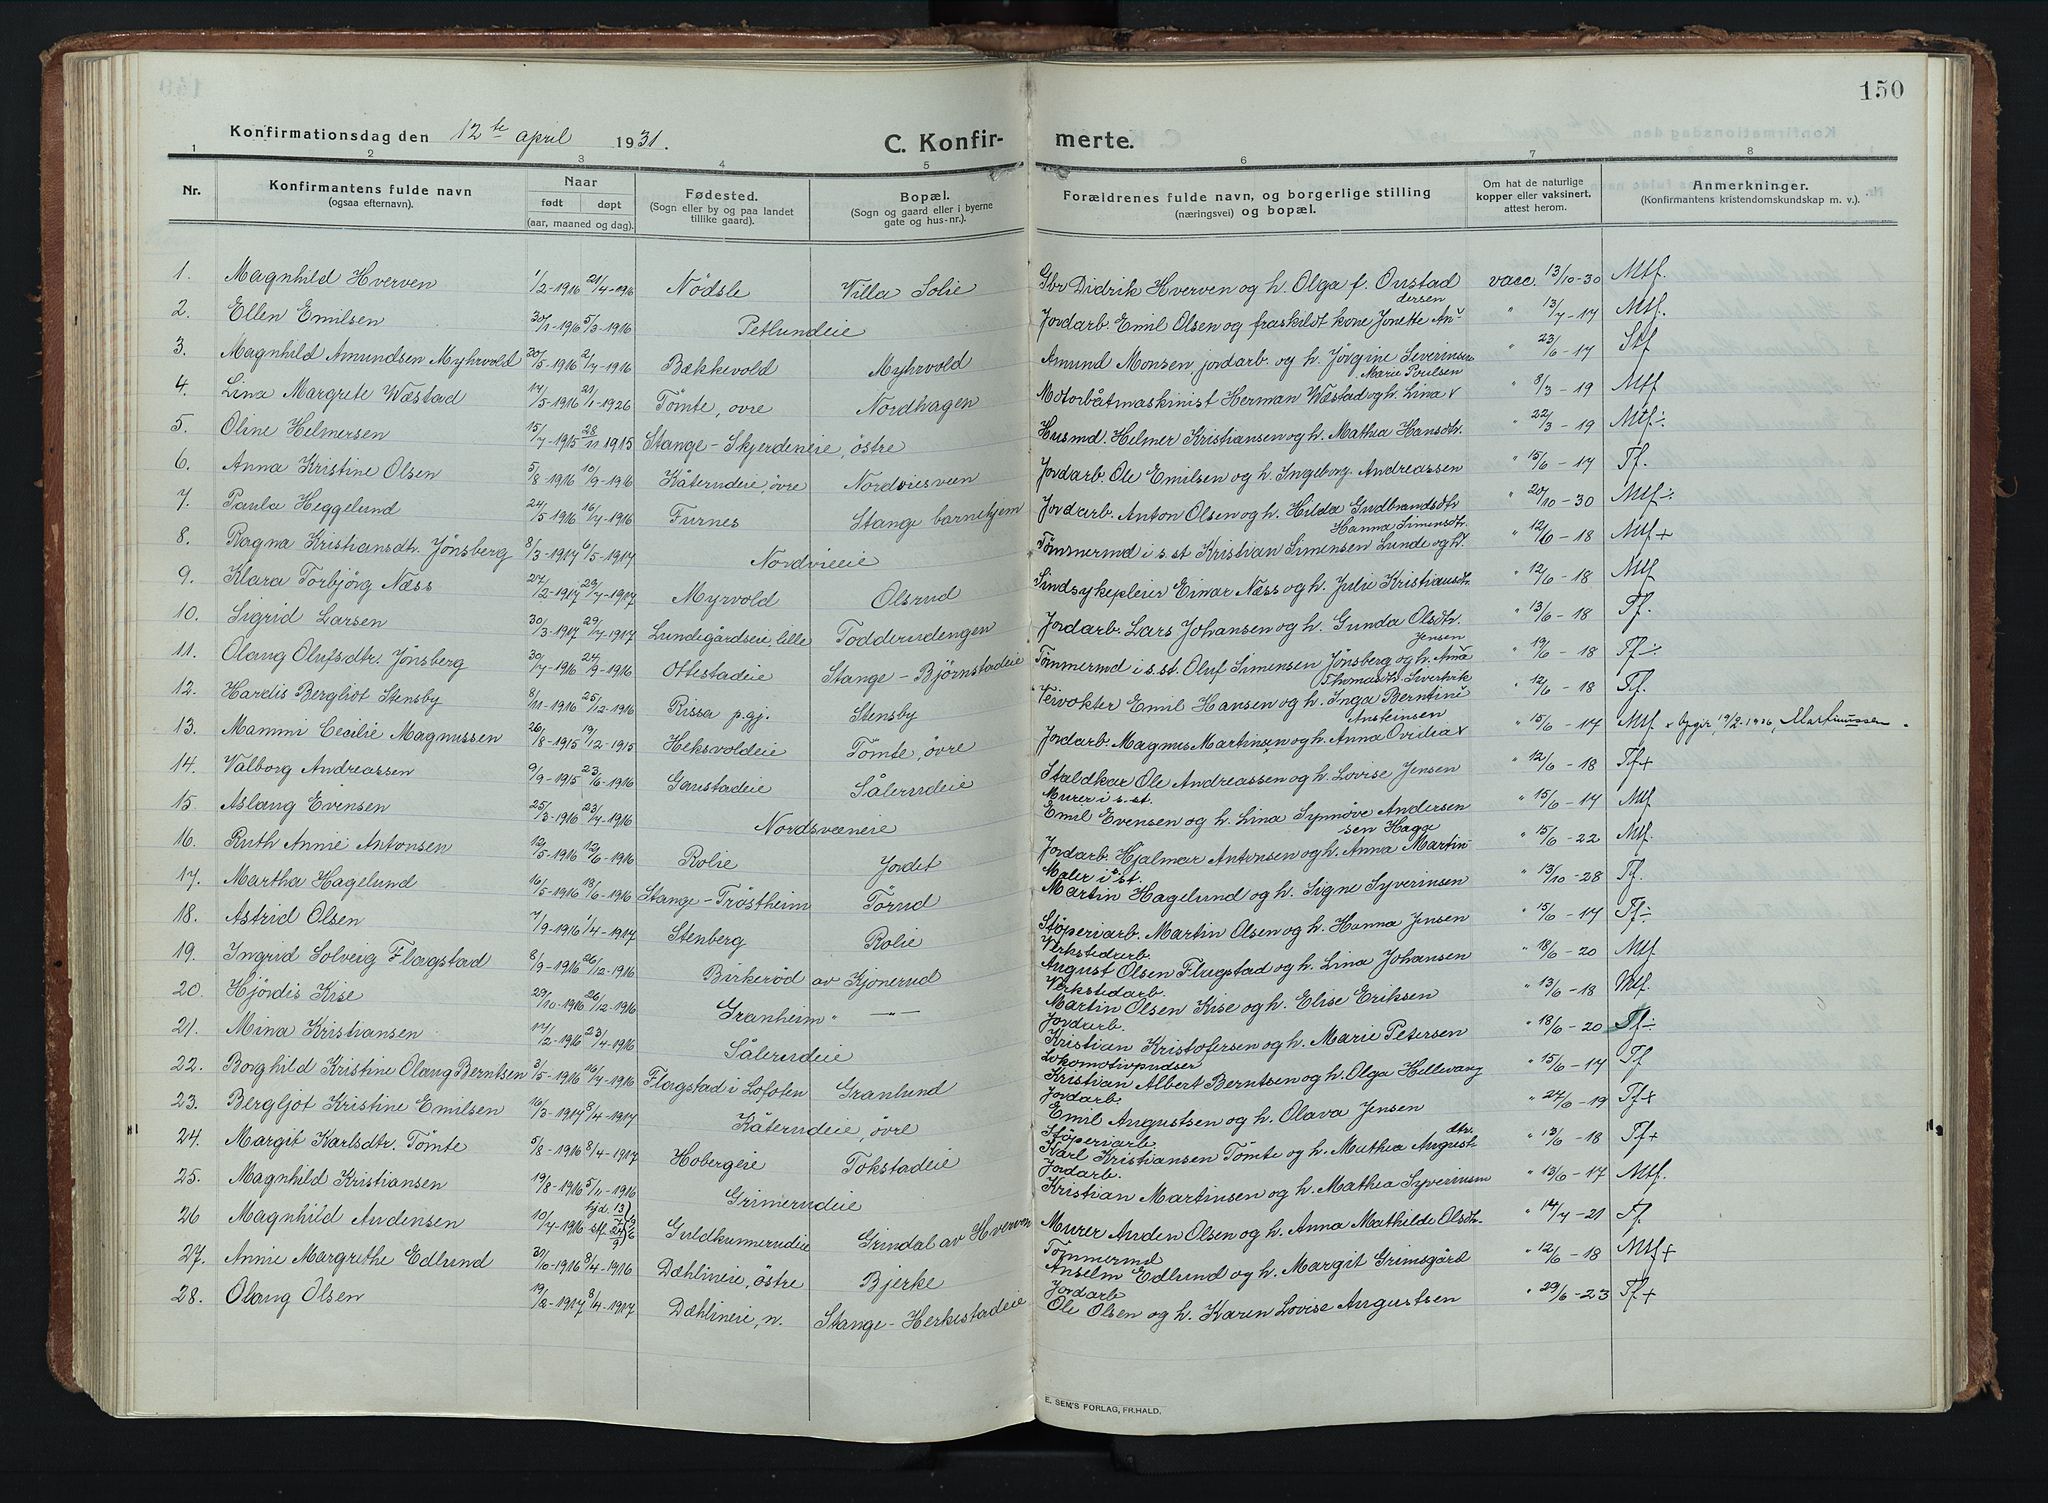 150
Konfirmationsdag den 12te april 1931.
C. Konfir- merte.
1 2 3 4 5 6 7 8
Nr. Konfirmantens fulde navn (ogsaa efternavn). Naar født døpt (aar, maaned og dag). Fødested. (Sogn eller by og paa landet tillike gaard). Bopæl. (Sogn og gaard eller i byerne gate og hus-nr.). Forældrenes fulde navn, og borgerlige stilling (næringsvei) og bopæl. Om hat de naturlige kopper eller vaksinert, attest herom. Anmerkninger. (Konfirmantens kristendomskundskap m. v.).
1. Magnhild Hverven 1/2-1916 21/4-1916 Nödsle Villa Solie Gbr Didrik Hverven og h. Olga f. Onstad vacc. 13/10-30 Mtf.
2. Ellen Emilsen 30/1-1916 5/3-1916 Petlundeie Jordarb. Emil Olsen og fraskildt kone Jonette Andersen " 13/7-17 Mtf.
3. Magnhild Amundsen Myhrvold 20/5-1916 2/7-1916 Bækkevold Myhrvold Amund Monsen, jordarb. og h. Jörgine Severinsen " 23/6-17 Stf
4. Lina Margrete Wæstad 17/5-1916 21/1-1926 Tömte, övre Nordhagen Motorbåtmaskinist Herman Wæstad og h. Lina x Marie Poulsen " 8/3-19 Mtf
5. Oline Helmersen 15/7-1915 28/11 1915 Stange-Skjerdeneie, östre Husmd. Helmer Kristiansen og h. Mathea Hansdtr. " 22/3-19 Mtf÷
6. Anna Kristine Olsen 5/8-1916 10/9-1916 Kåterudeie, övre Nordvisveen Jordarb. Ole Emilsen og h. Ingeborg Andreassen " 15/6-17 Tf.
7. Paula Heggelund 24/5-1916 16/7-1916 Furnes Stange barnehjem Jordarb. Anton Olsen og h. Hilda Gudbrandsdtr " 20/10-30 Mtf÷
8. Ragna Kristiansdtr. Jönsberg 8/3-1917 6/5-1917 Nordvieie Tömmermd i s. st Kristian Simensen Lunde og h. Hanna Simensdtr. " 12/6-18 Mtf+
9. Klara Torbjörg Næss 27/2-1917 29/7-1917 Myrvold Olsrud Sindsykepleier Einar Næss og h. Julie Kristiansdtr. " 12/6-18 Mtf
10. Sigrid Larsen 30/3-1917 29/7-1917 Lundegårdseie, lille Todderudengen Jordarb. Lars Johansen og h. Gunda Olsdtr. " 13/6-18 Tf.
11. Olaug Olufsdtr. Jönsberg 30/7-1916 24/9-1916 Ottestadeie Stange-Björnstadeie Tömmermd i s. st. Oluf Simensen Jönsberg og h. Anna Jensen " 19/6-18 Tf÷
12. Hardis Bergliot Stensby 8/11-1916 25/12-1916 Rissa p.gj. Stensby Veivokter Emil Hansen og h. Inga Berntine Thomasdtr. " 12/6-18 Tf.
13. Mammi Cecilie Magnussen 26/8-1915 19/12-1915 Heksvoldeie Tömte, övre Jordarb. Magnus Martinsen og h. Anna Ovidia x Ansteinsen " 15/6-17 Mtf. 19/2-1916, Martinussen.
14. Valborg Andreassen 9/9-1915 23/6-1916 Gaustadeie Sålerudeie Staldkar Ole Andreassen og h. Lovise Jensen " 12/6-18 Tf+
15. Aslaug Evensen 25/3-1916 23/4-1916 Nordsvæneie Murer i s. st. Emil Evensen og h. Lina Synnöve Andersen " 15/6-17 Mtf
16. Ruth Annie Antonsen 12/5-1916 12/6-1916 Rolie Jordet Jordarb. Hjalmar Antonsen og h. Anna Martinsen Haga " 15/6-22 Mtf.
17. Martha Hagelund 16/5-1916 18/6-1916 Stange-Tröstheim Törud Maler i s. st. Martin Hagelund og h. Signe Syverinsen " 13/10-28 Tf.
18. Astrid Olsen 7/9-1916 1/4-1917 Stenberg Rolie Stöperiarb. Martin Olsen og h. Hanna Jensen " 15/6-17 Tf÷
19. Ingrid Solveig Flagstad 8/9-1916 26/12-1916 Birkeröd av Kjonerud Verkstedarb. August Olsen Flagstad og h. Lina Johansen " 18/6-20 Mtf.
20. Hjördis Kise 29/10-1916 26/12-1916 Granheim " — " — Verkstedarb. Martin Olsen Kise og h. Elise Eriksen " 13/6-18 Mtf.
21. Mina Kristiansen 17/2-1916 23/4-1916 Sålerudeie Jordarb. Kristian Kristofersen og h. Marie Petersen " 18/6-20 Tf÷
22. Borghild Kristine Olaug Berntsen 3/5-1916 16/7-1916 Flagstad i Lofoten Granlund Lokomotivpudser Kristian Albert Berntsen og h. Olga Hellevang " 15/6-17 Tf
23. Bergljot Kristine Emilsen 16/3-1917 8/4-1917 Kåterudeie, övre Jordarb. Emil Augustsen og h. Olava Jensen " 27/6-19 Tf+
24. Margit Karlsdtr. Tömte 5/8-1916 8/4-1917 Hobergeie Tokstadeie Stöperiarb. Karl Kristiansen Tömte og h. Mathea Augustdtr. " 13/6-18 Tf+
25. Magnhild Kristiansen 19/8-1916 5/11-1916 Grimerudeie Jordarb. Kristian Martinsen og h. Mathea Syverinsen " 13/6-17 Mtf.
26 Magnhild Andersen 10/7-1916 hjd. 13/7 stf. 24/9 16 Guldkunnerudeie Grindal av Hverven Murer Anden Olsen og h. Anna Mathilde Olsdtr. " 14/7-21 Tf.
27. Annie Margrethe Edlund 30/10-1916 8/4-1916 Dæhlineie, östre Bjerke Tömmermd Anselm Edlund og h. Margit Grimsgård " 12/6-18 Mtf+
28. Olaug Olsen 19/2-1917 8/4-1917 Dæhlineie, n. Stange-Herkestadeie Jordarb Ole Olsen og h. Karen Lovise Augustsen " 29/6-23 Tf+
E. SEM'S FORLAG, FR.HALD.